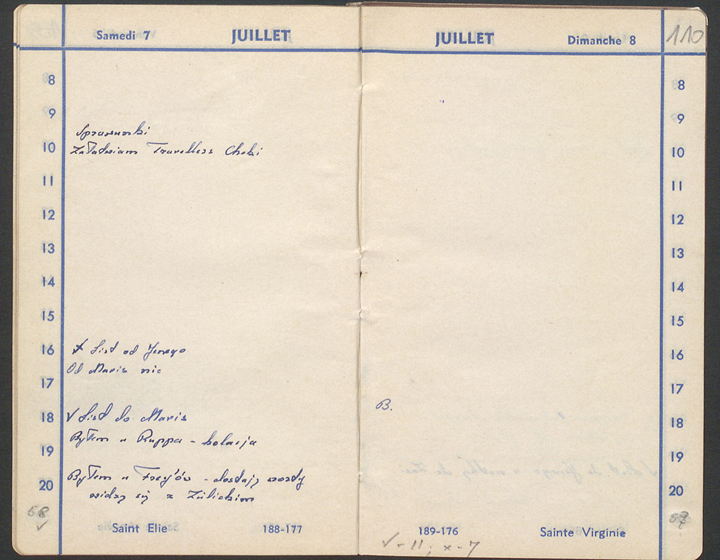 Samedi 7 JUILLET
8
9
Sprawunki
10 Załatwiam Travellers Cheki
11
12
13
14
15
16 x List od Jerzego
Od Maris nic
17
18 V List do Maris
Byłem u Ruppa - kolacja
19
20 Byłem u Freyów - dostaję
widzę się z Zulickim
68
V
Saint Elie 188-177
JUILLET Dimanche 8 110
8
9
10
11
12
13
14
15
16
17
B.
18
19
20
69
189-176 Sainte Virginie
V-11; x-7